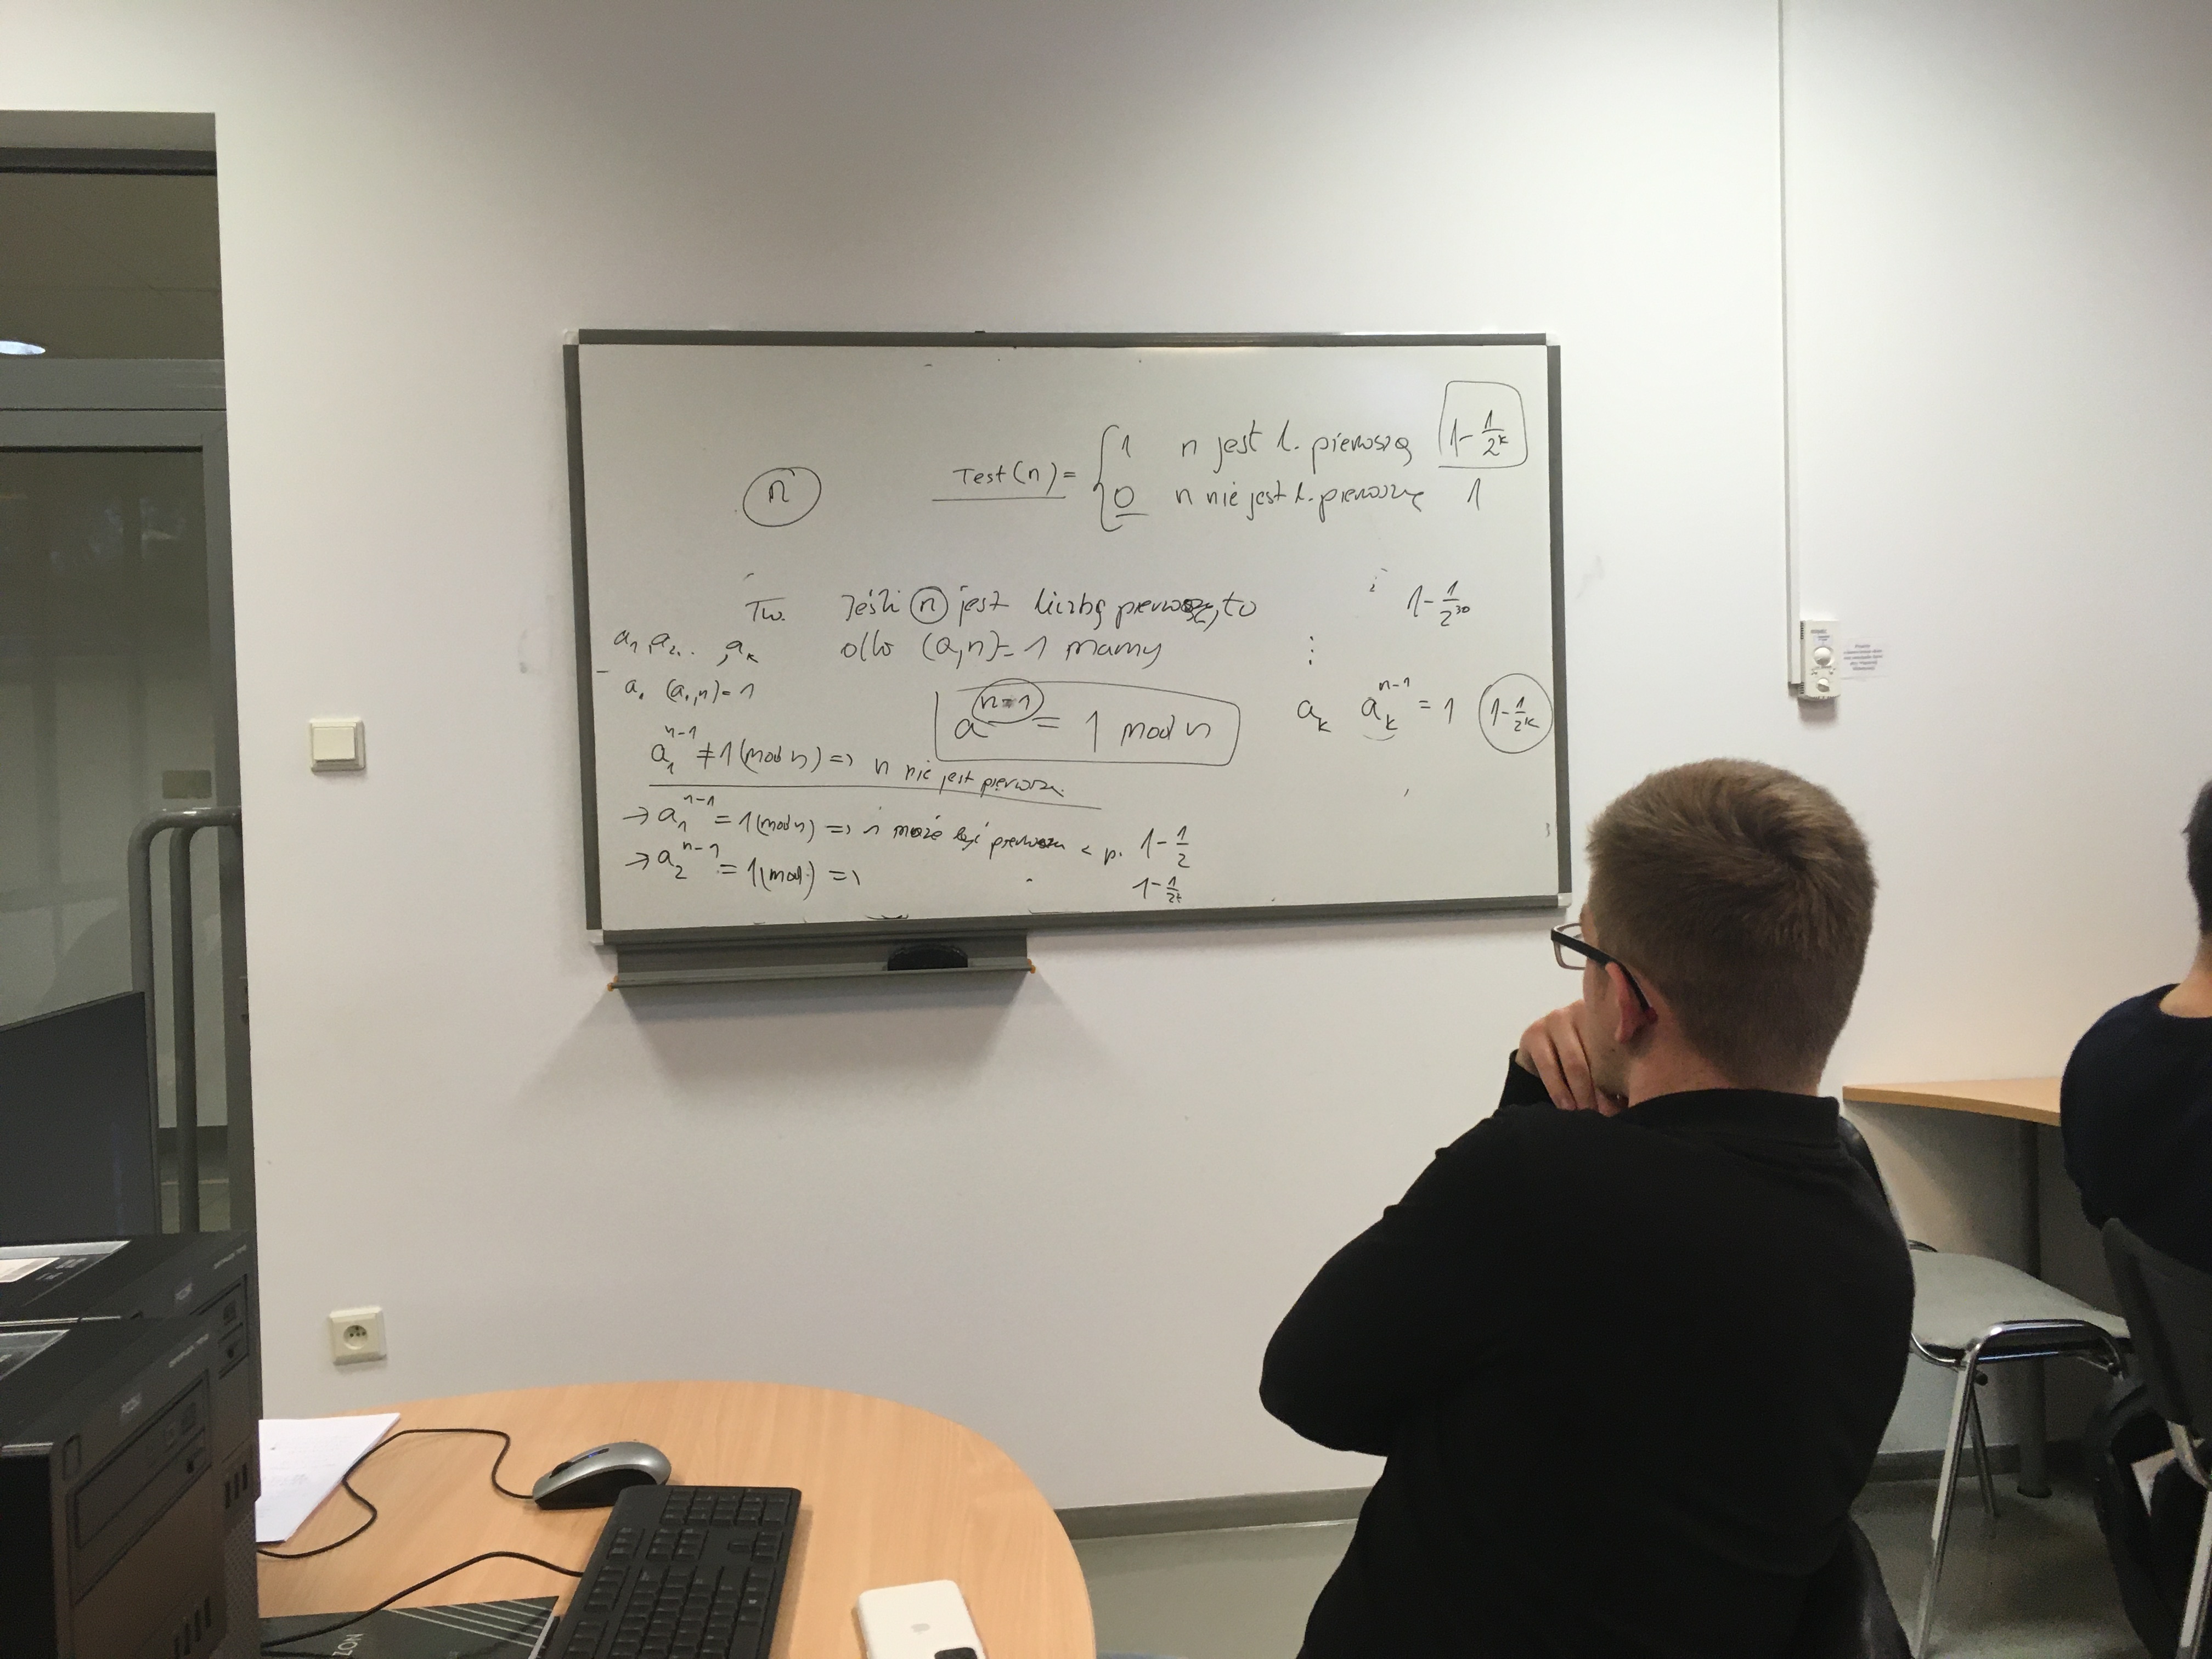 n
Test(n) = { 1 n jest l. pierwszą 1 - 1/2^k
0 n nie jest l. pierwszą 1
Tw. Jeśli n jest liczbą pierwszą, to
dla (a,n) = 1 mamy
a^(n-1) = 1 mod n
a_1, a_2.. , a_k
a_1 (a_1, n) = 1
a_1^(n-1) ≠ 1 (mod n) => n nie jest pierwsza
-> a_1^(n-1) = 1 (mod n) => n może być pierwsza < p. 1 - 1/2
-> a_2^(n-1) = 1 (mod) => 1 - 1/2^2
1 - 1/2^30
⋮
a_k a_k^(n-1) = 1 1 - 1/2^k